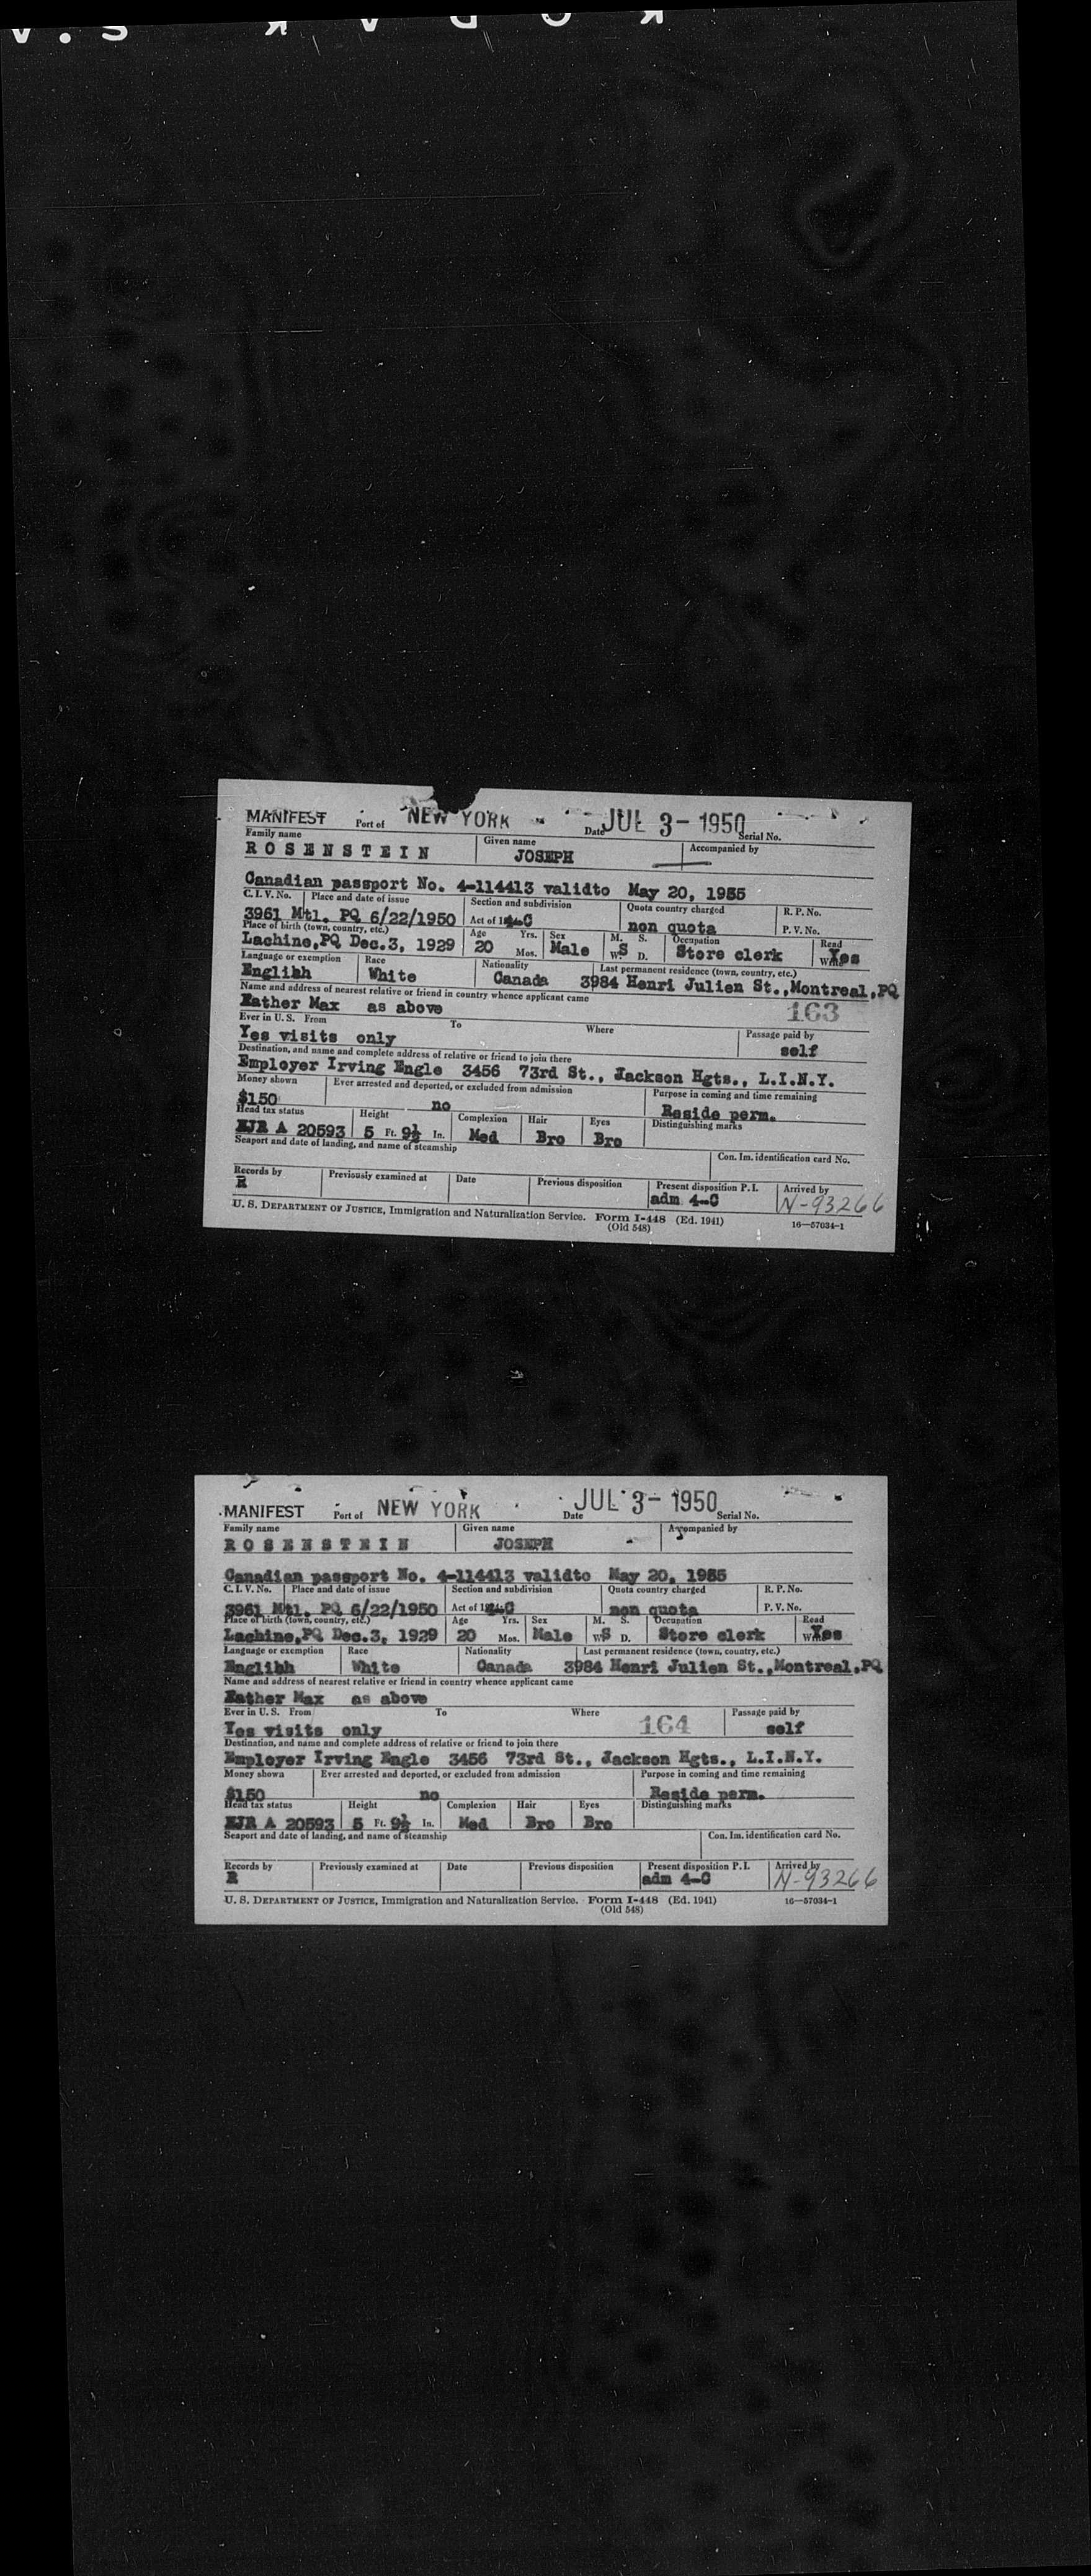 S.A K O D A K
MANIFEST Port of NEW YORK Date JUL 3-1950 Serial No.
Family name Given name Accompanied by
ROSENSTEIN JOSEPH
Canadian passport No. 4-114413 validto May 20, 1955
C. I. V. No. Place and date of issue Section and subdivision Quota country charged R. P. No.
3961 Mtl. PQ 6/22/1950 Act of 4-C non quota P. V. No.
Place of birth (town, country, etc.) Age Yrs. Sex M. S. Occupation Read
Lachine,PQ Dec.3, 1929 20 Mos. Male W. S D. Store clerk Write Yes
Language or exemption Race Nationality Last permanent residence (town, country, etc.)
English White Canada 3984 Henri Julien St.,Montreal,PQ
Name and address of nearest relative or friend in country whence applicant came
Father Max as above 163
Ever in U. S. From To Where Passage paid by
Yes visits only self
Destination, and name and complete address of relative or friend to join there
Employer Irving Engle 3456 73rd St., Jackson Hgts., L.I.N.Y.
Money shown Ever arrested and deported, or excluded from admission Purpose in coming and time remaining
$150 no Reside perm.
Head tax status Height Complexion Hair Eyes Distinguishing marks
A 20593 5 Ft. 9½ In. Med Bro Bro
Seaport and date of landing, and name of steamship Con. Im. identification card No.
Records by Previously examined at Date Previous disposition Present disposition P. I. Arrived by
R adm 4-C N-93266
U. S. DEPARTMENT OF JUSTICE, Immigration and Naturalization Service. Form I-448 (Ed. 1941) 16—57034-1
(Old 548)
MANIFEST Port of NEW YORK Date JUL 3-1950 Serial No.
Family name Given name Accompanied by
ROSENSTEIN JOSEPH
Canadian passport No. 4-114413 validto May 20, 1955
C. I. V. No. Place and date of issue Section and subdivision Quota country charged R. P. No.
3961 Mtl. PQ 6/22/1950 Act of 4-C non quota P. V. No.
Place of birth (town, country, etc.) Age Yrs. Sex M. S. Occupation Read
Lachine,PQ Dec.3, 1929 20 Mos. Male W. S D. Store clerk Write Yes
Language or exemption Race Nationality Last permanent residence (town, country, etc.)
English White Canada 3984 Henri Julien St.,Montreal,PQ
Name and address of nearest relative or friend in country whence applicant came
Father Max as above
Ever in U. S. From To Where Passage paid by
Yes visits only 164 self
Destination, and name and complete address of relative or friend to join there
Employer Irving Engle 3456 73rd St., Jackson Hgts., L.I.N.Y.
Money shown Ever arrested and deported, or excluded from admission Purpose in coming and time remaining
$150 no Reside perm.
Head tax status Height Complexion Hair Eyes Distinguishing marks
A 20593 5 Ft. 9½ In. Med Bro Bro
Seaport and date of landing, and name of steamship Con. Im. identification card No.
Records by Previously examined at Date Previous disposition Present disposition P. I. Arrived by
R adm 4-C N-93266
U. S. DEPARTMENT OF JUSTICE, Immigration and Naturalization Service. Form I-448 (Ed. 1941) 16—57034-1
(Old 548)